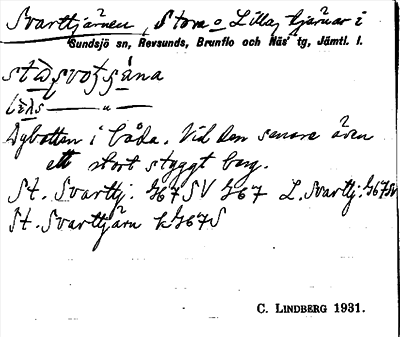 Svarttjärnen, Stora o Lilla, tjärnar i
Sundsjö sn, Revsunds, Brunflo och Näs tg, Jämtl. l.
Dybotten i båda. Vid den senare även
ett stort styggt berg.
St. Svarttj. H67SV H67 L. Svarttj. H67SV
St. Svarttjärn k H67S
C. LINDBERG 1931.